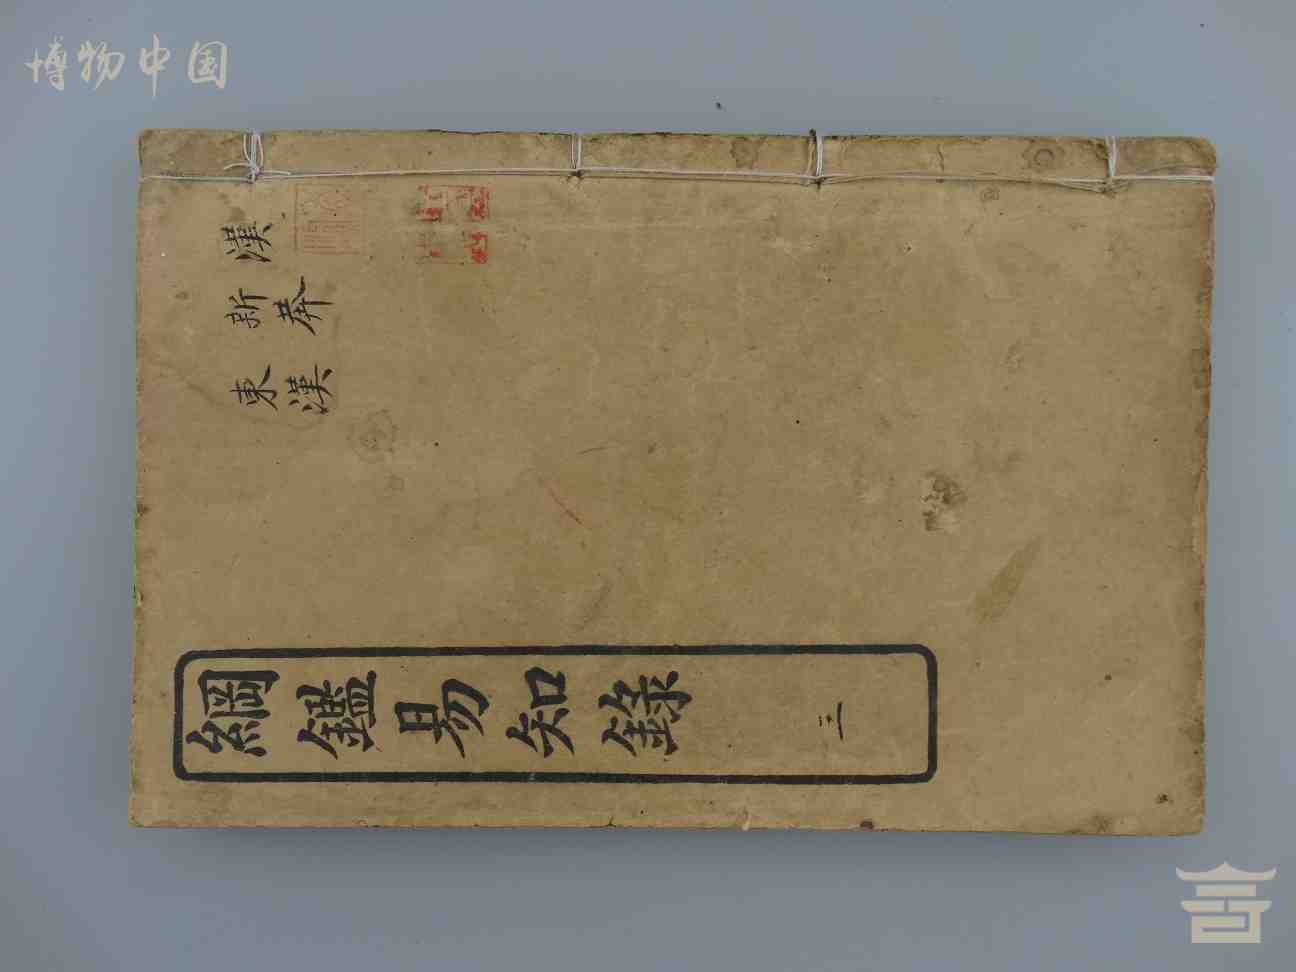 博物中国
漢
新莽
東漢
綱鑑易知錄
三